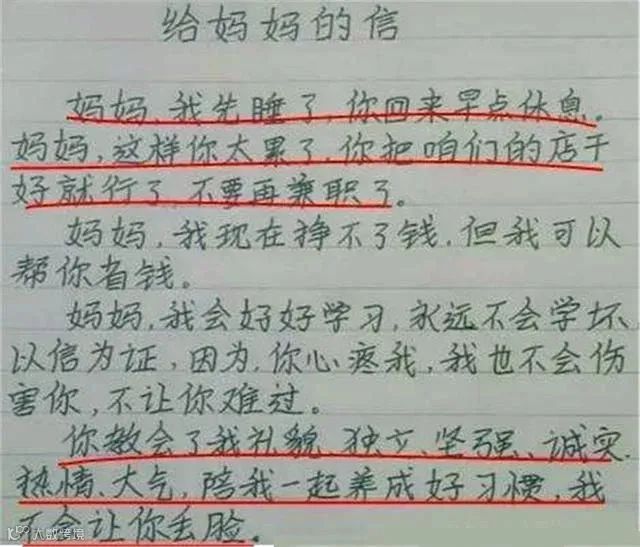 给妈妈的信
妈妈，我先睡了，你回来早点休息。
妈妈，这样你太累了，你把咱们的店干
好就行了，不要再兼职了。
妈妈，我现在挣不了钱，但我可以
帮你省钱。
妈妈，我会好好学习，永远不会学坏
以信为证，因为，你心疼我，我也不会伤
害你，不让你难过。
你教会了我礼貌、独立、坚强、诚实、
热情、大气，陪我一起养成好习惯，我
不会让你丢脸。
大数跨境